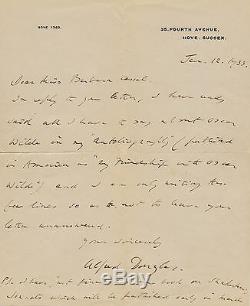 HOVE 1088.
35, FOURTH AVENUE,
HOVE, SUSSEX.
Jan. 12. 1933
Dear Miss Barbara
In reply to your letter, I have
said all I have to say about Oscar
Wilde in my "Autobiography" (published
in America as "My Friendship with Oscar
Wilde") and I am only writing these
few lines so as to not to leave your
letter unanswered.
Yours sincerely
Alfred Douglas
P.S. I have just finished book on Shakespeare
Sonnets which will be published